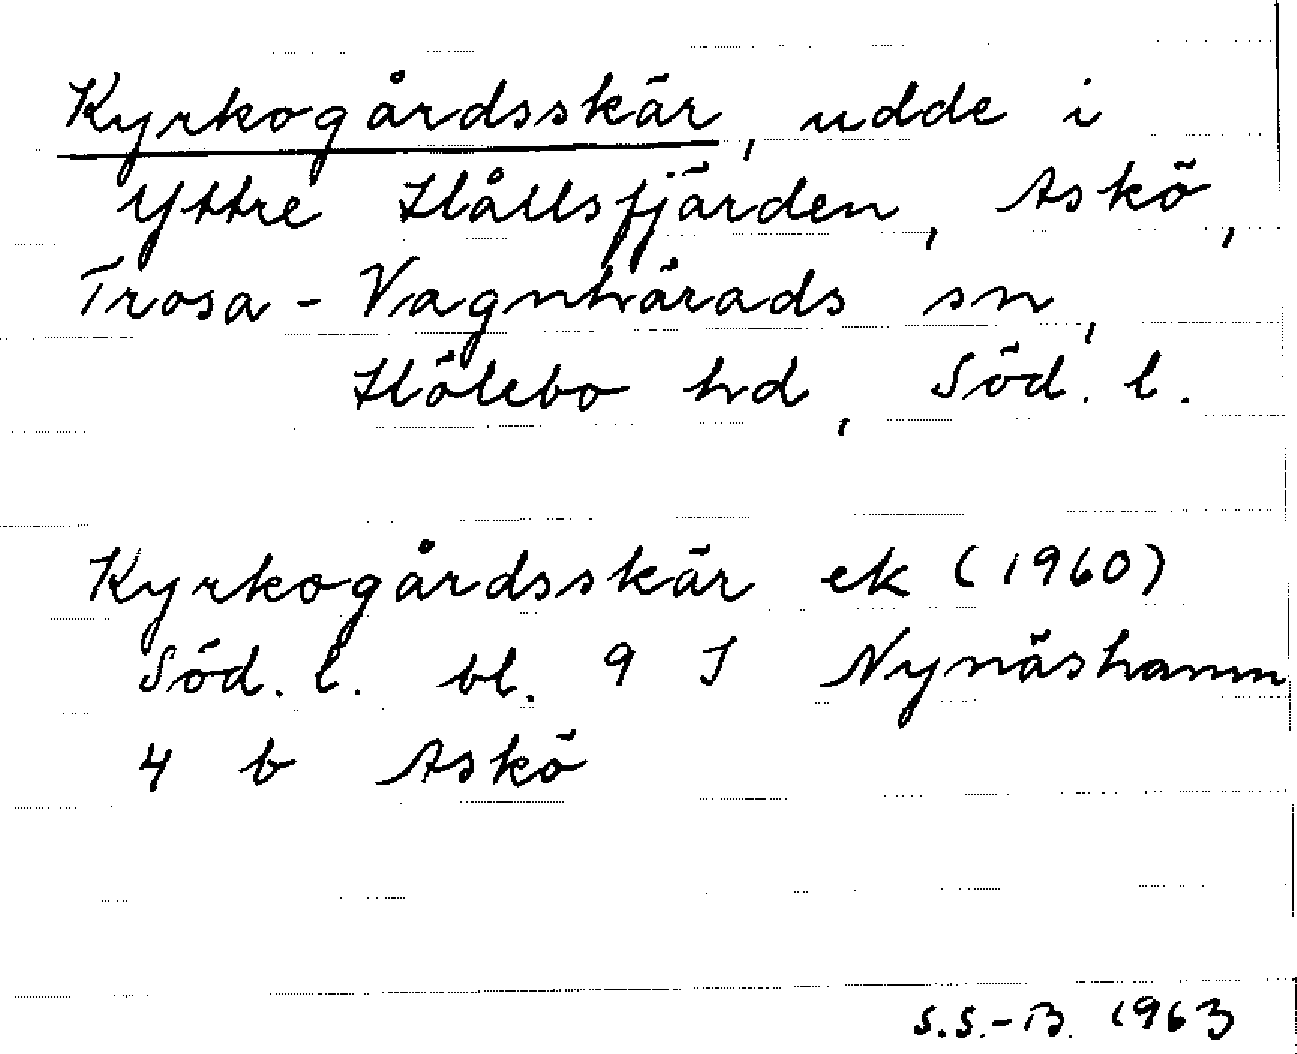 Kyrkogårdsskär, udde i
Yttre Hållsfjärden, Askö,
Trosa - Vagnhärads sn,
Hölebo hd, Söd. l.
Kyrkogårdsskär ek (1960)
Söd. l. bl. 9 I Nynäshamn
4 b Askö
S.S.-B. 1963